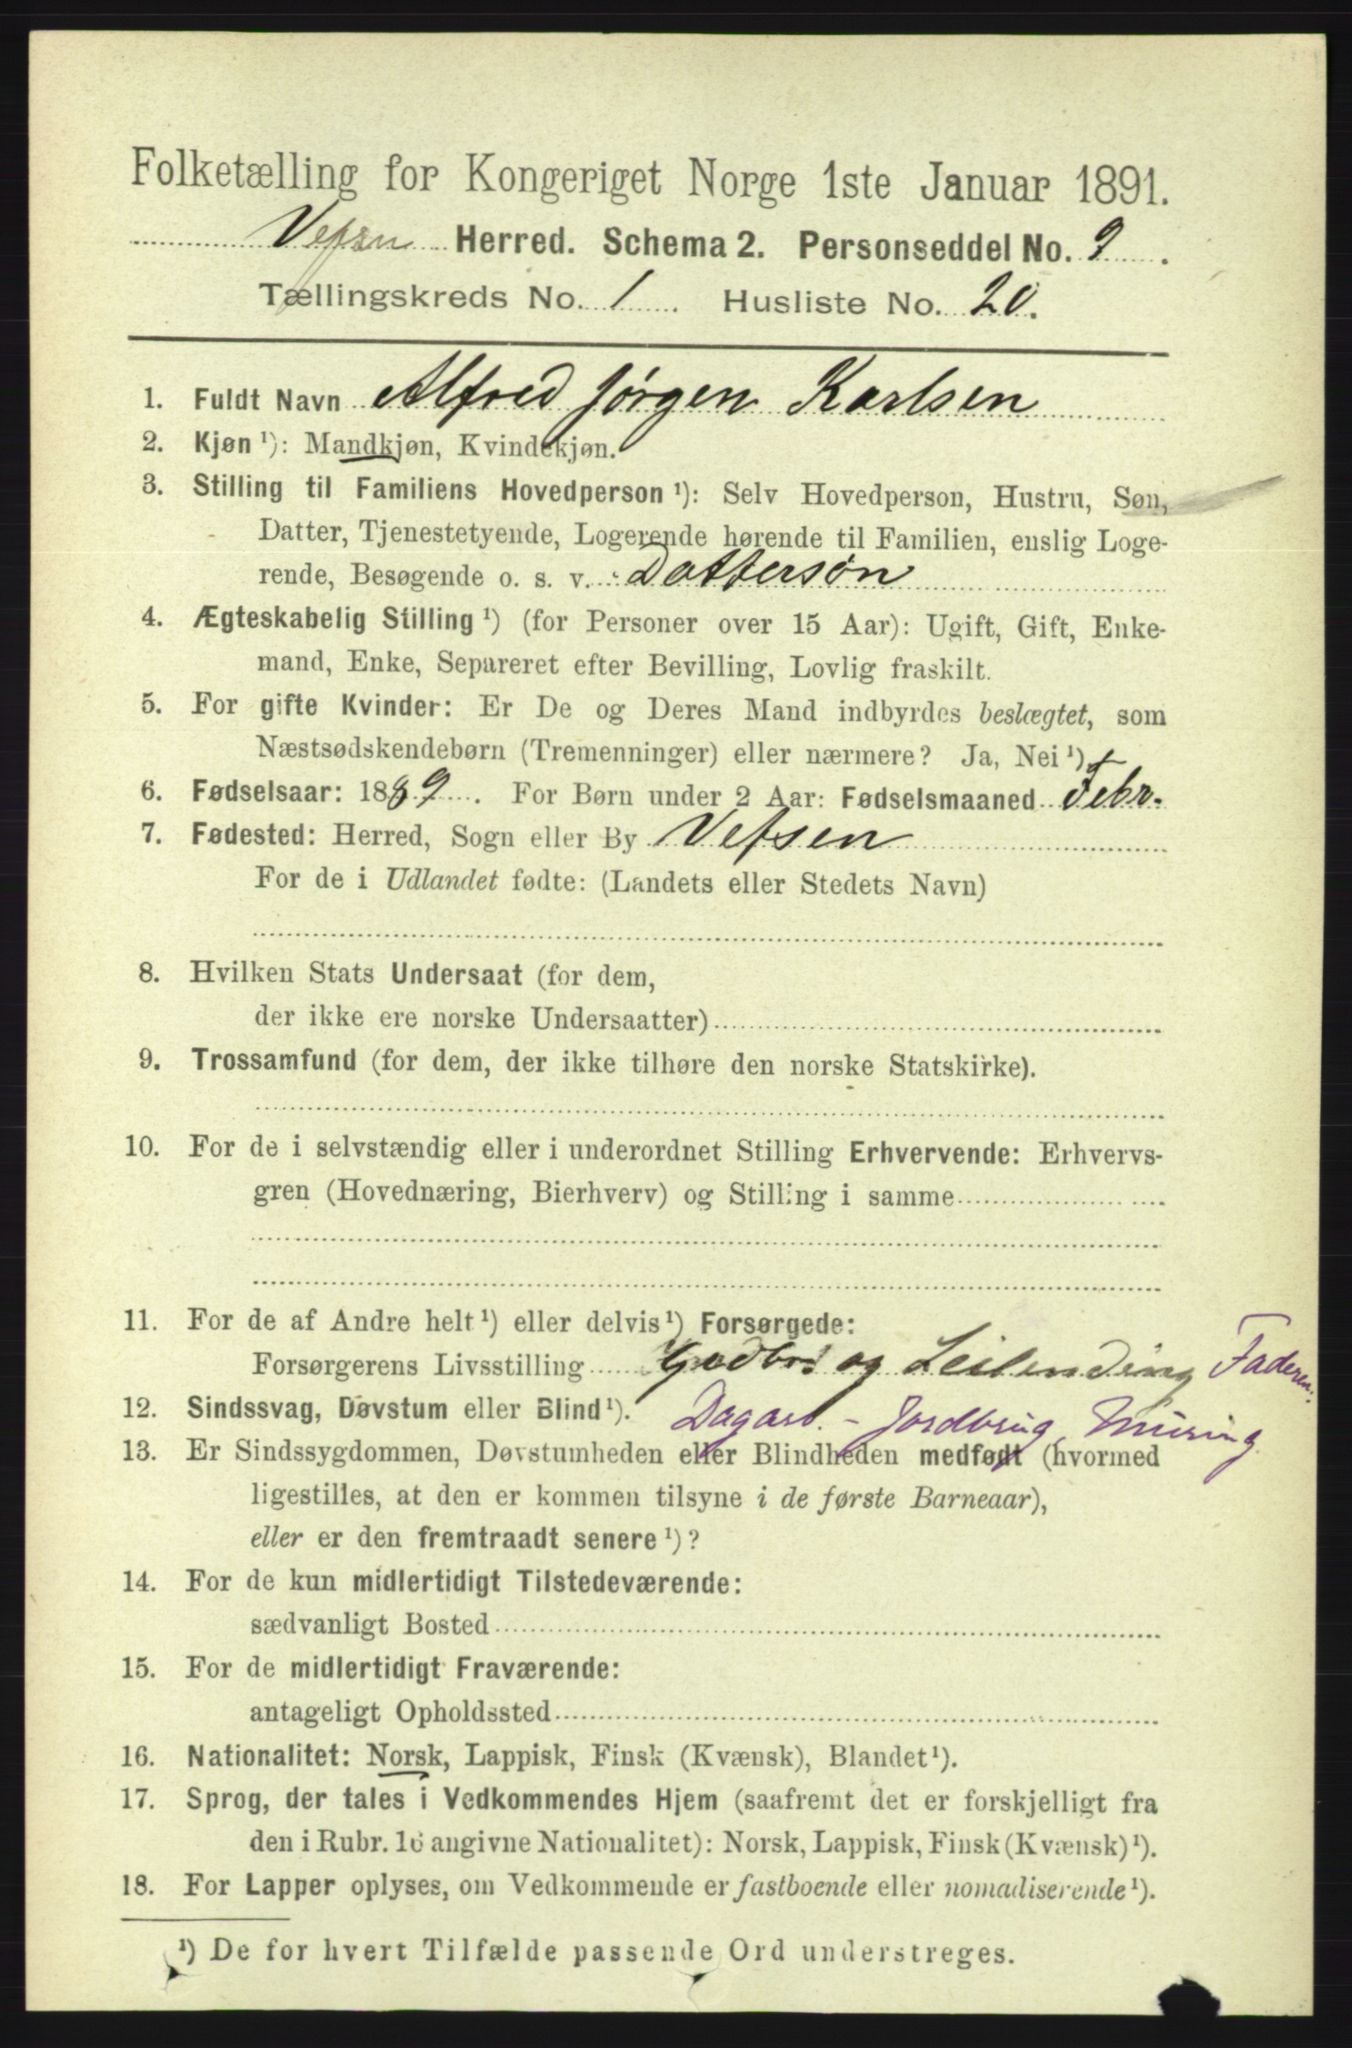 Folketælling for Kongeriget Norge 1ste Januar 1891.
Vefsn Herred. Schema 2. Personseddel No. 9.
Tællingskreds No. 1. Husliste No. 20.
1. Fuldt Navn Alfred Jørgen Karlsen
2. Kjøn ¹): Mandkjøn, Kvindekjøn.
3. Stilling til Familiens Hovedperson ¹): Selv Hovedperson, Hustru, Søn,
Datter, Tjenestetyende, Logerende hørende til Familien, enslig Loge-
rende, Besøgende o. s. v. Dattersøn
4. Ægteskabelig Stilling ¹) (for Personer over 15 Aar): Ugift, Gift, Enke-
mand, Enke, Separeret efter Bevilling, Lovlig fraskilt.
5. For gifte Kvinder: Er De og Deres Mand indbyrdes beslægtet, som
Næstsødskendebørn (Tremenninger) eller nærmere? Ja, Nei ¹)
6. Fødselsaar: 1889. For Børn under 2 Aar: Fødselsmaaned Febr.
7. Fødested: Herred, Sogn eller By Vefsen
For de i Udlandet fødte: (Landets eller Stedets Navn)
8. Hvilken Stats Undersaat (for dem,
der ikke ere norske Undersaatter)
9. Trossamfund (for dem, der ikke tilhøre den norske Statskirke).
10. For de i selvstændig eller i underordnet Stilling Erhvervende: Erhvervs-
gren (Hovednæring, Bierhverv) og Stilling i samme
11. For de af Andre helt ¹) eller delvis ¹) Forsørgede:
Forsørgerens Livsstilling og Leilending Faderen:
12. Sindssvag, Døvstum eller Blind ¹). Dagarb. - Jordbrug,
13. Er Sindssygdommen, Døvstumheden eller Blindheden medfødt (hvormed
ligestilles, at den er kommen tilsyne i de første Barneaar),
eller er den fremtraadt senere ¹)?
14. For de kun midlertidigt Tilstedeværende:
sædvanligt Bosted
15. For de midlertidigt Fraværende:
antageligt Opholdssted
16. Nationalitet: Norsk, Lappisk, Finsk (Kvænsk), Blandet ¹).
17. Sprog, der tales i Vedkommendes Hjem (saafremt det er forskjelligt fra
den i Rubr. 16 angivne Nationalitet): Norsk, Lappisk, Finsk (Kvænsk) ¹).
18. For Lapper oplyses, om Vedkommende er fastboende eller nomadiserende ¹).
¹) De for hvert Tilfælde passende Ord understreges.